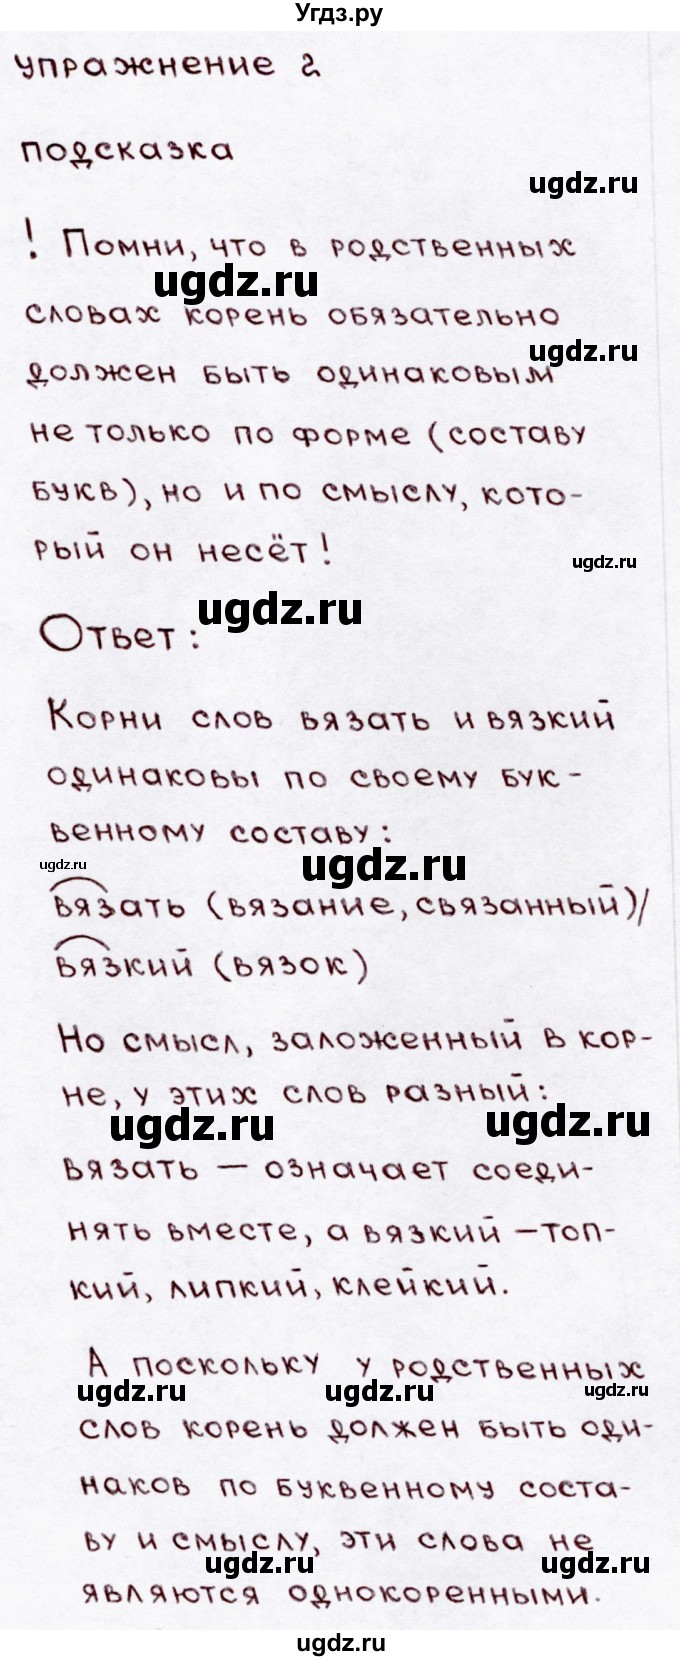 Угдз.ру
упражнение 2
подсказка
ugdz.ru
! Помни, что в родственных
ugdz.ru
словах корень обязательно
ugdz.ru
должен быть одинаковым
не только по форме (составу
букв), но и по смыслу, кото-
рый он несёт!
ugdz.ru
ugdz.ru
Ответ:
Корни слов вязать и вязкий
одинаковы по своему бук-
венному составу:
ugdz.ru
ugdz.ru
вязать (вязание, связанный)/
вязкий (вязок)
Но смысл, заложенный в кор-
не, у этих слов разный:
ugdz.ru
ugdz.ru
вязать — означает соеди-
нять вместе, а вязкий – топ-
кий, липкий, клейкий.
А поскольку у родственных
ugdz.ru
ugdz.ru
ugdz.ru
слов корень должен быть оди-
наков по буквенному соста-
ву и смыслу, эти слова не
ugdz.ru
ugdz.ru
являются однокоренными.
ugdz.ru